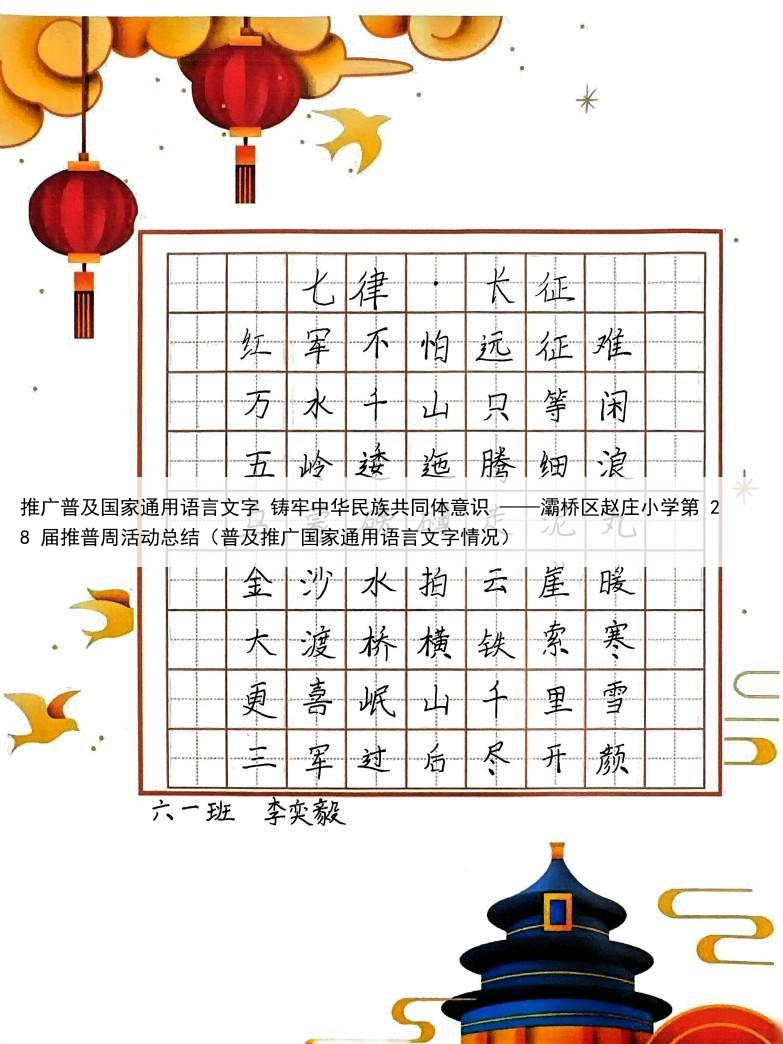 七律·长征
红军不怕远征难
万水千山只等闲
五岭逶迤腾细浪
乌蒙磅礴走泥丸
推广普及国家通用语言文字 铸牢中华民族共同体意识 ——灞桥区赵庄小学第 2
8 届推普周活动总结（普及推广国家通用语言文字情况）
金沙水拍云崖暖
大渡桥横铁索寒
更喜岷山千里雪
三军过后尽开颜
六一班 李奕毅